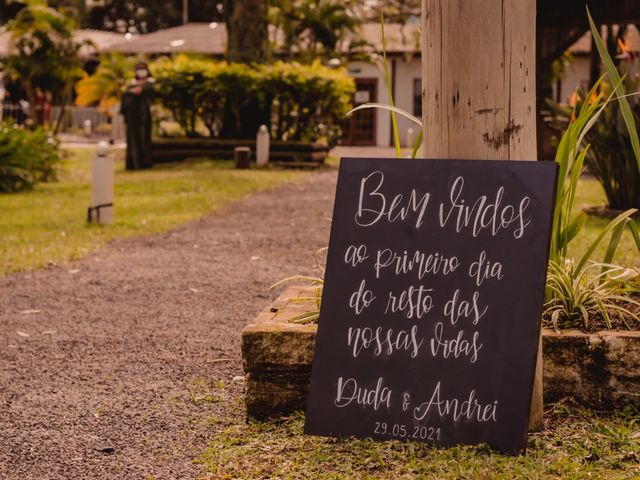 Bem Vindos
ao primeiro dia
do resto das
nossas vidas
Duda & Andrei
29.05.2021